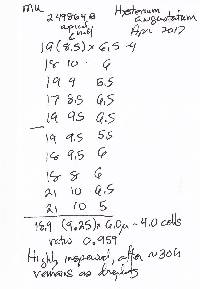 mu
Hysterium
angustatum
Apr 2017
19 (8.5) x 6.5 - 4
18 10 6
19 9 5.5
17 8.5 6.5
19 9.5 6.5
19 9.5 5.5
18 9.5 6
18 8 6
21 10 6.5
21 10 5
18.9 (9.25) x 6.0µ - 4.0 cells
ratio 0.959
Highly , after ~30%
remains as droplets